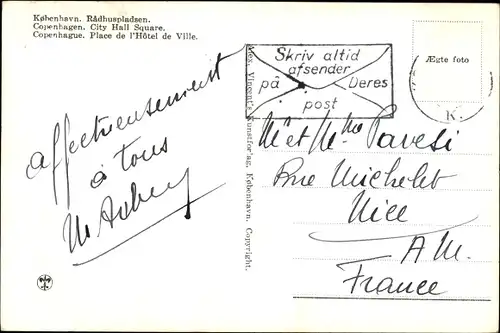 København. Rådhuspladsen.
Copenhagen. City Hall Square.
Copenhague. Place de l'Hôtel de Ville.
Skriv altid
afsender
på Deres
post
Ægte foto
K.
Alex. Vincent's Kunstforlag, København. Copyright.
affectueusement
à tous
M
Mr et Mme Pavesi
Rue Michelet
Nice
A.M.
France